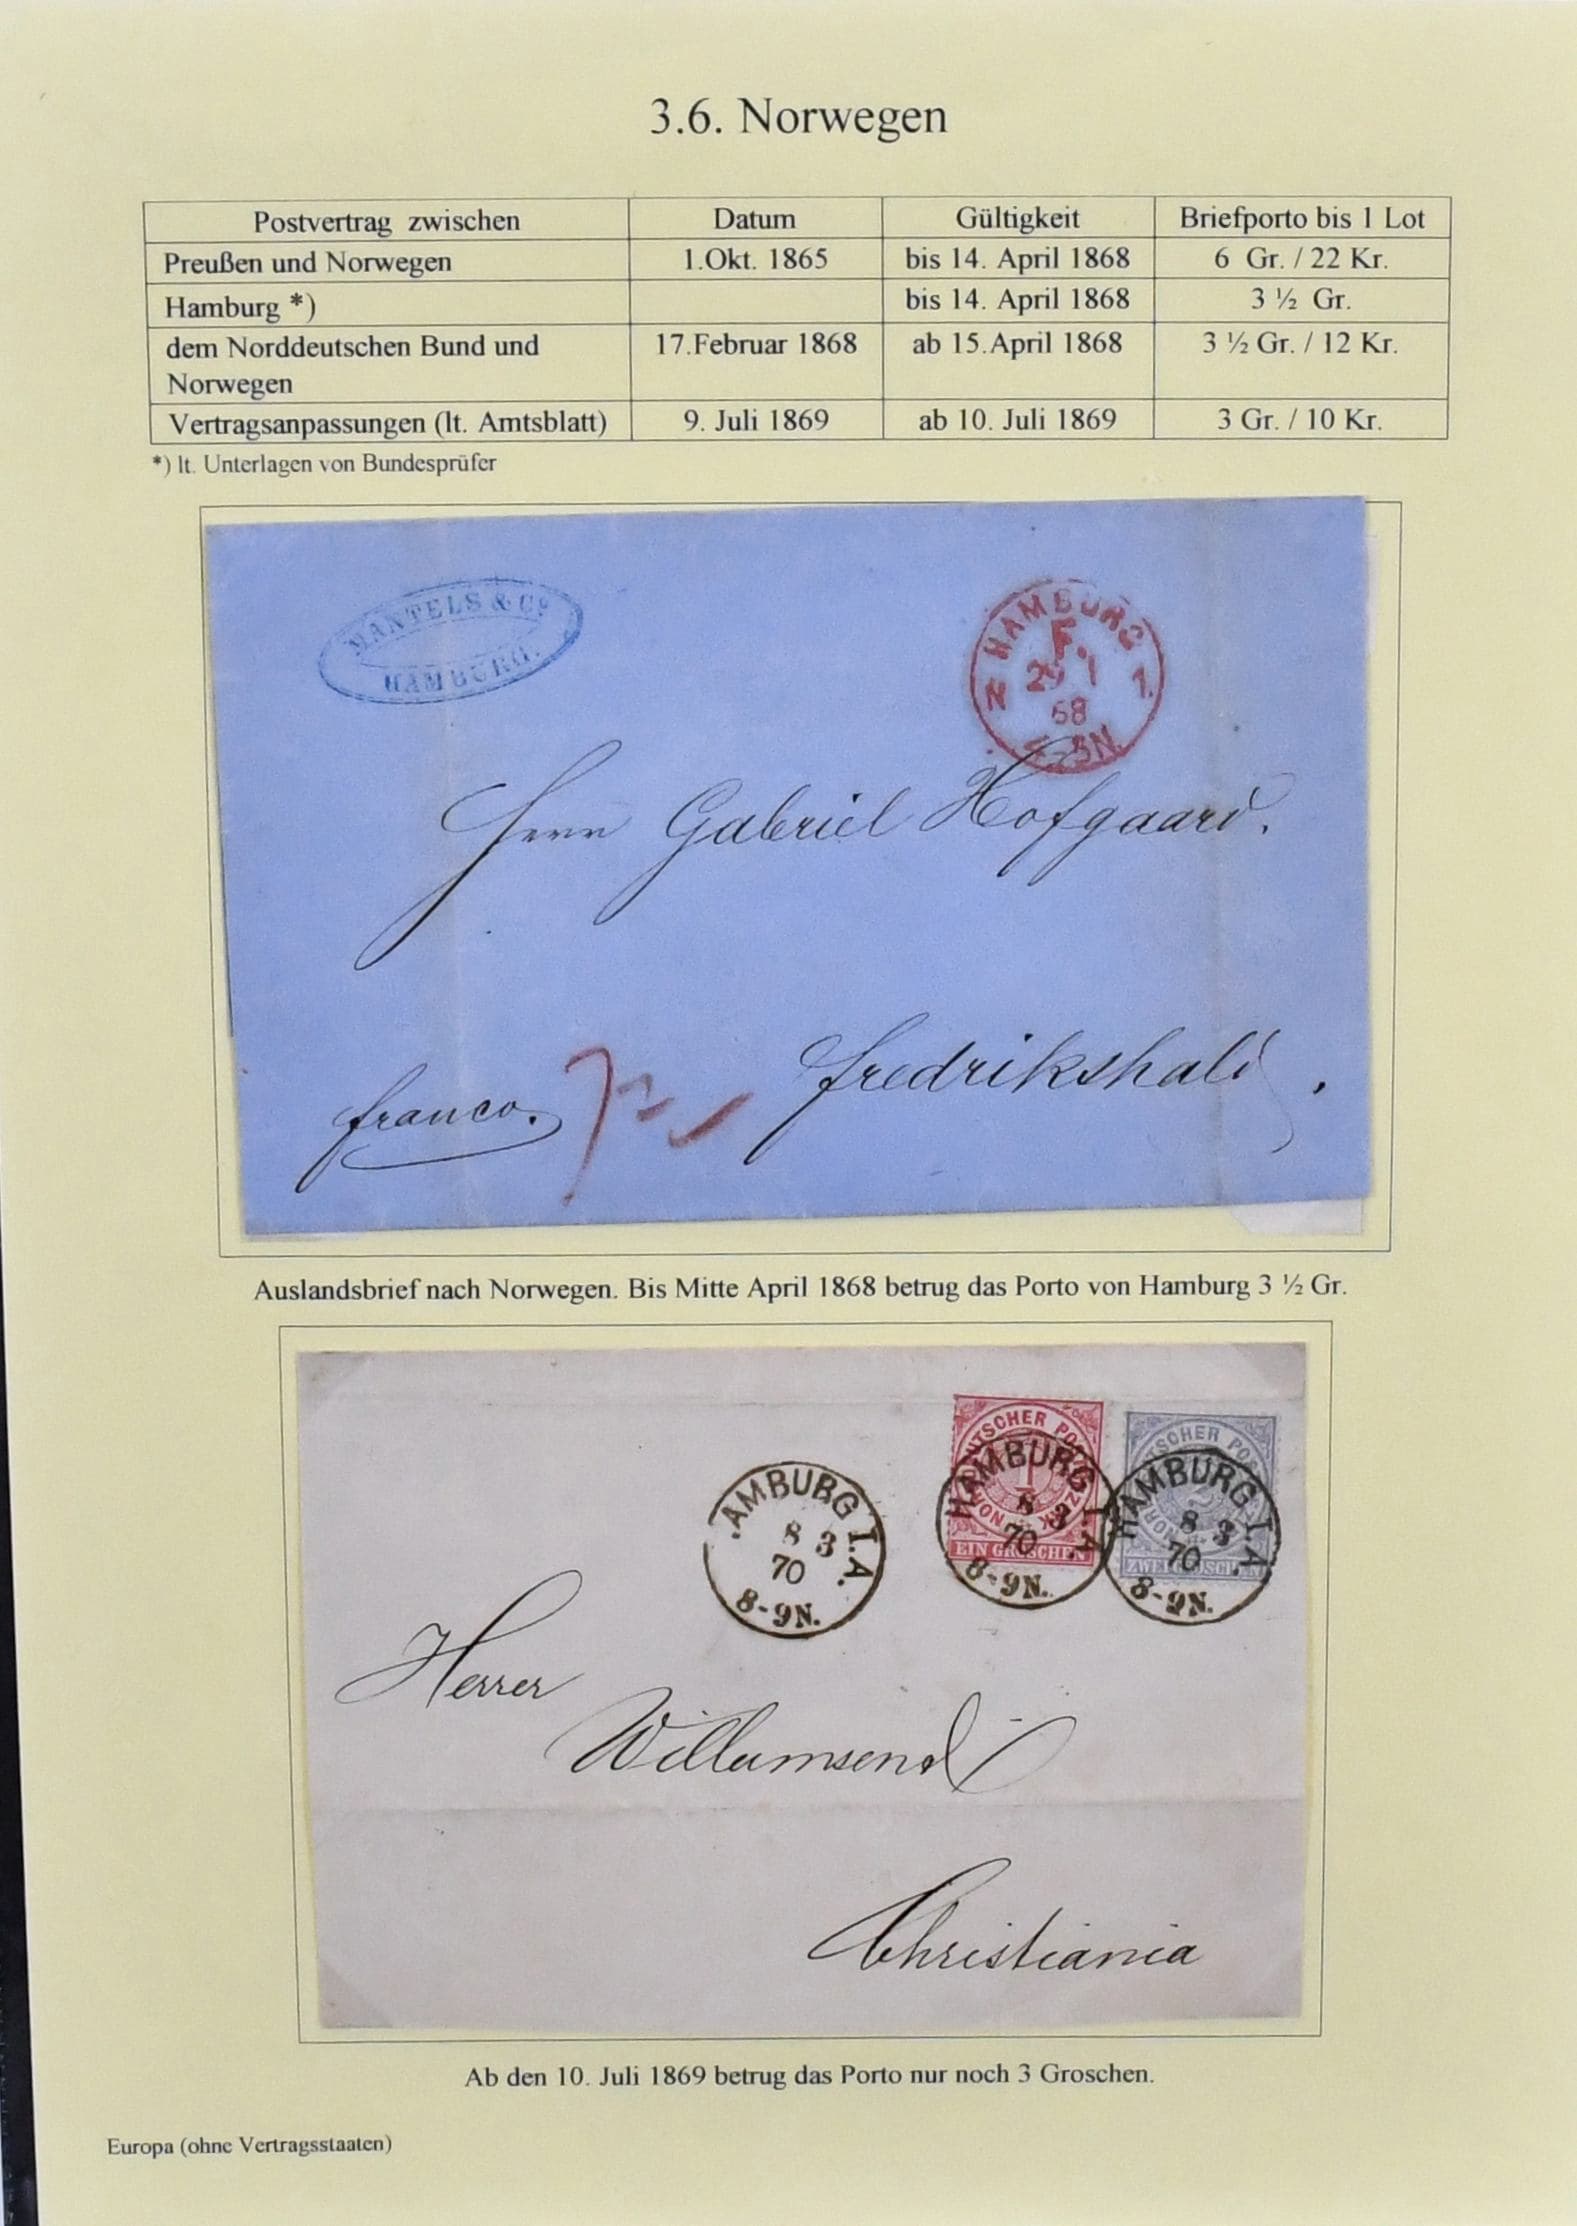 3.6. Norwegen
Postvertrag zwischen Datum Gültigkeit Briefporto bis 1 Lot
Preußen und Norwegen 1.Okt. 1865 bis 14. April 1868 6 Gr. / 22 Kr.
Hamburg *) bis 14. April 1868 3 ½ Gr.
dem Norddeutschen Bund und 17.Februar 1868 ab 15.April 1868 3 ½ Gr. / 12 Kr.
Norwegen
Vertragsanpassungen (lt. Amtsblatt) 9. Juli 1869 ab 10. Juli 1869 3 Gr. / 10 Kr.
*) lt. Unterlagen von Bundesprüfer
MANTELS & Co
HAMBURG.
HAMBURG
F.
29 1
N 68 1.
4-5N
Herrn Gabriel Hofgaard.
Fredrikshald,
franco.
Auslandsbrief nach Norwegen. Bis Mitte April 1868 betrug das Porto von Hamburg 3 ½ Gr.
AMBURG I.A.
8 3
70
8-9N.
UTSCHER POS
1
EIN GROSCHEN
HAMBURG I.A.
8 3
70
8-9N.
TSCHER POS
2
ZWEI GROSCHEN
HAMBURG I.A.
8 3
70
8-9N.
Herrer
Christiania
Ab den 10. Juli 1869 betrug das Porto nur noch 3 Groschen.
Europa (ohne Vertragsstaaten)